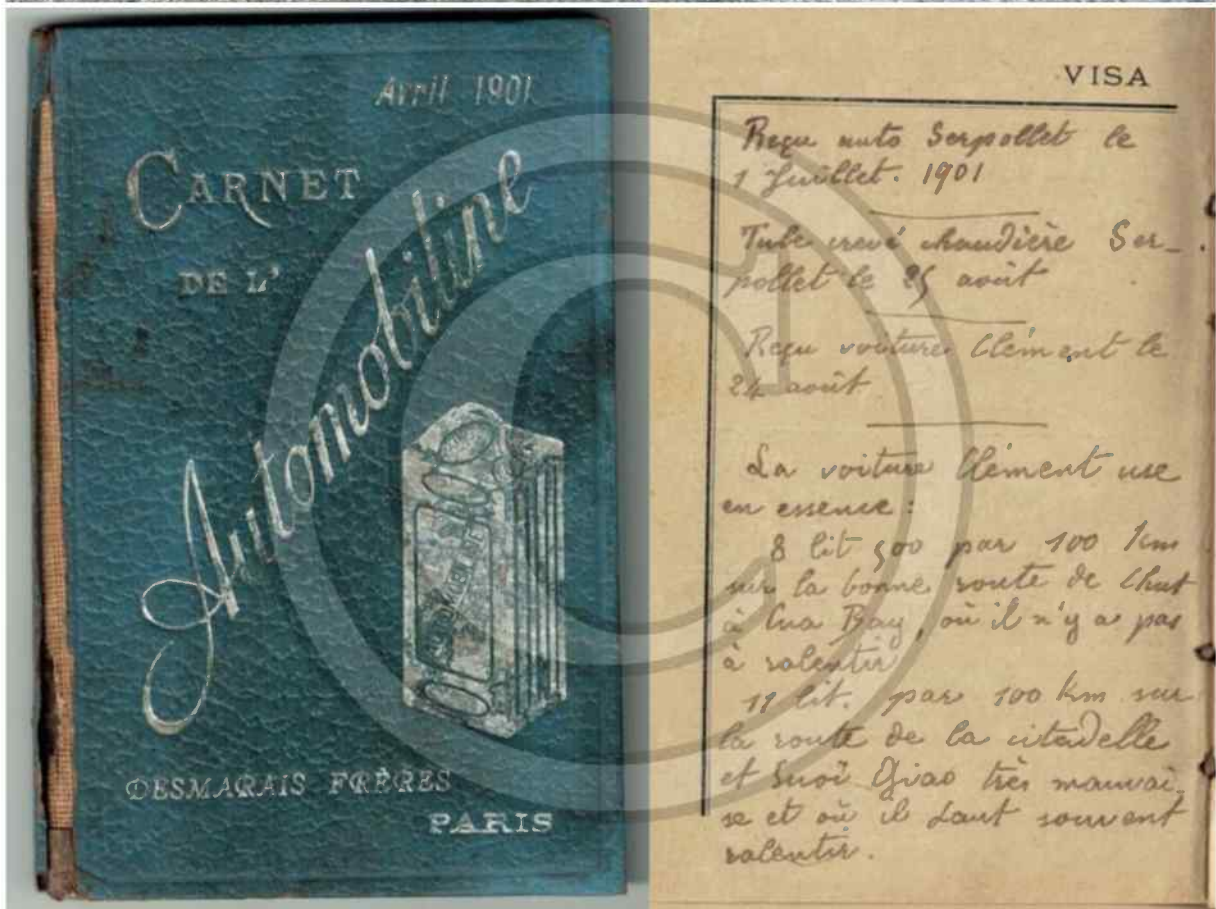 Avril 1901
CARNET
DE L'
Automobiline
DESMARAIS FRÈRES
PARIS
VISA
Reçu auto Serpollet le
1 Juillet. 1901
Tube crevé chaudière Ser-
pollet le 25 août
Reçu voiture Clément le
24 août
La voiture Clément use
en essence :
8 lit 500 par 100 km
sur la bonne route de Chut
à Cua Bay, où il n'y a pas
à ralentir
11 lit. par 100 km sur
la route de la citadelle
et Suoï Giao très mauvai-
se et où il faut souvent
ralentir.